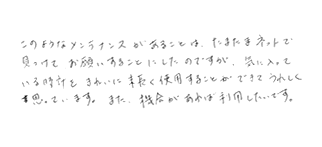 このようなメンテナンスがあることは、たまたまネットで
見つけてお願いすることにしたのですが、気に入って
いる時計をきれいに末長く使用することができてうれしく
思っています。また、機会があれば利用したいです。